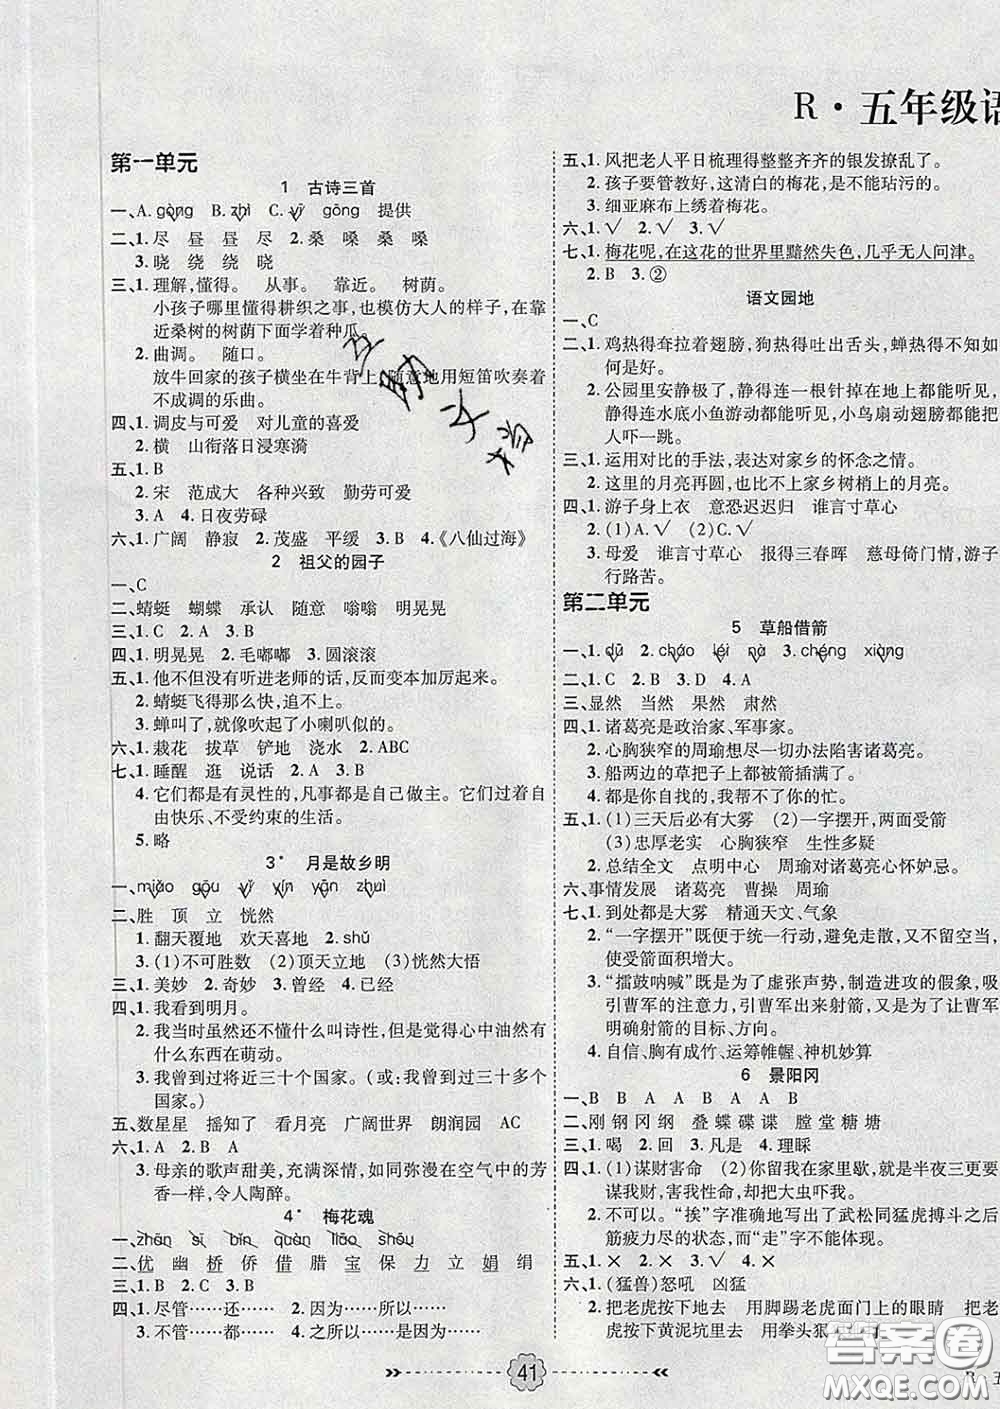 R·五年级语
第一单元
1 古诗三首
一、A.gòng B.zhì C.yì gōng 提供
二、1.尽 昼 昼 尽 2.桑 嗓 桑 嗓
3.晓 绕 绕 晓
三、1.理解,懂得。 从事。 靠近。 树荫。
小孩子哪里懂得耕织之事,也模仿大人的样子,在靠
近桑树的树荫下面学着种瓜。
2.曲调。 随口。
放牛回家的孩子横坐在牛背上,随意地用短笛吹奏着
不成调的乐曲。
四、1.调皮与可爱 对儿童的喜爱
2.横 山衔落日浸寒漪
五、1.B
2.宋 范成大 各种兴致 勤劳可爱
3.A 4.日夜劳碌
六、1.广阔 静寂 2.茂盛 平缓 3.B 4.《八仙过海》
2 祖父的园子
一、C
二、蜻蜓 蝴蝶 承认 随意 嗡嗡 明晃晃
三、1.C 2.A 3.B
四、1.明晃晃 2.毛嘟嘟 3.圆滚滚
五、1.他不但没有听进老师的话,反而变本加厉起来。
2.蜻蜓飞得那么快,追不上。
3.蝉叫了,就像吹起了小喇叭似的。
六、1.栽花 拔草 铲地 浇水 2.ABC
七、1.睡醒 逛 说话 2.A 3.B
4.它们都是有灵性的,凡事都是自己做主。它们享受着自
由快乐、不受约束的生活。
5.略
3* 月是故乡明
一、miǎo gǒu yǐ yín yān zhuì
二、胜 顶 立 恍然
1.翻天覆地 欢天喜地 2.shǔ
3.(1)不可胜数 (2)顶天立地 (3)恍然大悟
三、1.美妙 2.奇妙 3.曾经 4.已经
四、1.我看到明月。
2.我当时虽然还不懂什么叫诗性,但是觉得心中油然有
什么东西在萌动。
3.我曾到过将近三十个国家。(或:我曾到过三十多个
国家。)
五、数星星 摇知了 看月亮 广阔世界 朗润园 AC
六、1.A 2.B A
3.母亲的歌声甜美,充满深情,如同弥漫在空气中的芳
香一样,令人陶醉。
4* 梅花魂
一、zhān sì bīn quàn liāo shǒu
二、优 幽 桥 侨 借 腊 宝 保 力 立 娟 绢
三、1.B 2.C 3.B C
四、1.尽管……还…… 2.因为……所以……
3.不管……都…… 4.之所以……是因为……
五、1.风把老人平日梳理得整整齐齐的银发撩乱了。
2.孩子要管教好,这清白的梅花,是不能玷污的。
3.细亚麻布上绣着梅花。
六、1.√ 2.√ 3.√
七、1.梅花呢,在这花的世界里黯然失色,几乎无人问津。
2.B 3.②
语文园地
一、C
二、1.鸡热得耷拉着翅膀,狗热得吐出舌头,蝉热得不知如
何是好。
2.公园里安静极了,静得连一根针掉在地上都能听见,
静得连水底小鱼游动都能听见,小鸟扇动翅膀都能把
人吓一跳。
三、1.运用对比的手法,表达对家乡的怀念之情。
2.这里的月亮再圆,也比不上家乡树梢上的月亮。
四、1.游子身上衣 意恐迟迟归 谁言寸草心
2.(1)A.√ (2)C.√
3.母爱 谁言寸草心 报得三春晖 慈母倚门情,游子
行路苦。
第二单元
5 草船借箭
一、1.dū 2.cháo léi nà 3.chéng xiàng
二、1.C 2.B 3.D 4.A
三、显然 当然 果然 肃然
四、1.诸葛亮是政治家、军事家。
2.心胸狭窄的周瑜想尽一切办法陷害诸葛亮。
3.船两边的草把子上都被箭插满了。
4.都是你自找的,我帮不了你的忙。
五、1.(1)三天后必有大雾 (2)一字摆开,两面受箭
(3)忠厚老实 心胸狭窄 生性多疑
2.总结全文 点明中心 周瑜对诸葛亮心怀妒忌
六、事情发展 诸葛亮 曹操 周瑜
七、1.到处都是大雾 精通天文、气象
2.“一字摆开”既便于统一行动,避免走散,又不留空当,
使受箭面积增大。
3.“擂鼓呐喊”既是为了虚张声势,制造进攻的假象,吸
引曹军的注意力,引曹军出来射箭,又是为了让曹军
明确射箭的目标、方向。
4.自信、胸有成竹、运筹帷幄、神机妙算
6 景阳冈
一、B B A B A A B
二、刚 钢 冈 纲 叠 蝶 碟 谍 膛 堂 糖 塘
三、1.喝 2.回 3.凡是 4.理睬
四、1.(1)谋财害命 (2)你留我在家里歇,就是半夜三更要
谋我财,害我性命,却把大虫吓我。
2.不可以。“挨”字准确地写出了武松同猛虎搏斗之后
筋疲力尽的状态,而“走”字不能体现。
五、1.× 2.× 3.√ 4.×
六、1.(猛兽)怒吼 凶猛
2.把老虎按下地去 用脚踢老虎面门上的眼睛 把老
虎按下黄泥坑里去 用拳头狠
41
答案圈
MXQE.COM